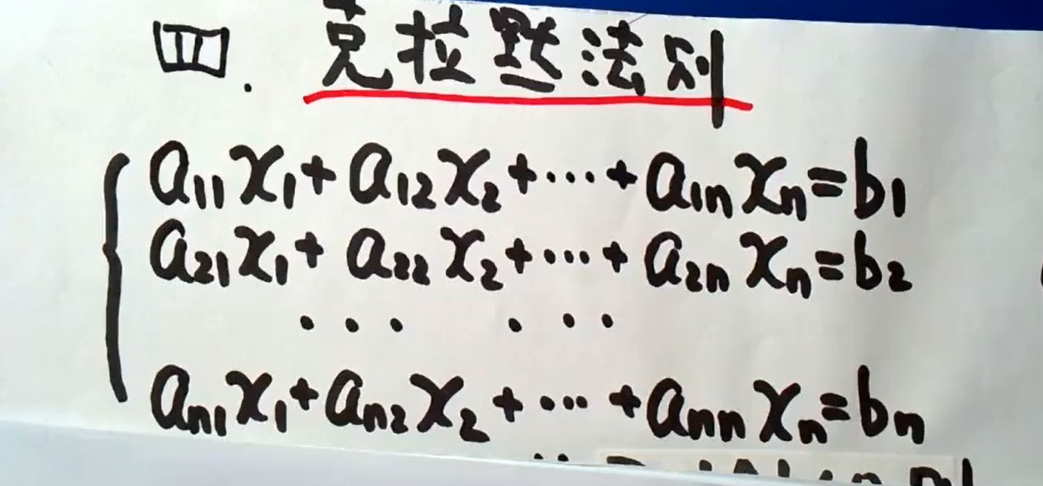 四. 克拉默法则
a₁₁x₁+a₁₂x₂+…+a₁ₙxₙ=b₁
a₂₁x₁+a₂₂x₂+…+a₂ₙxₙ=b₂
... ...
aₙ₁x₁+aₙ₂x₂+…+aₙₙxₙ=bₙ